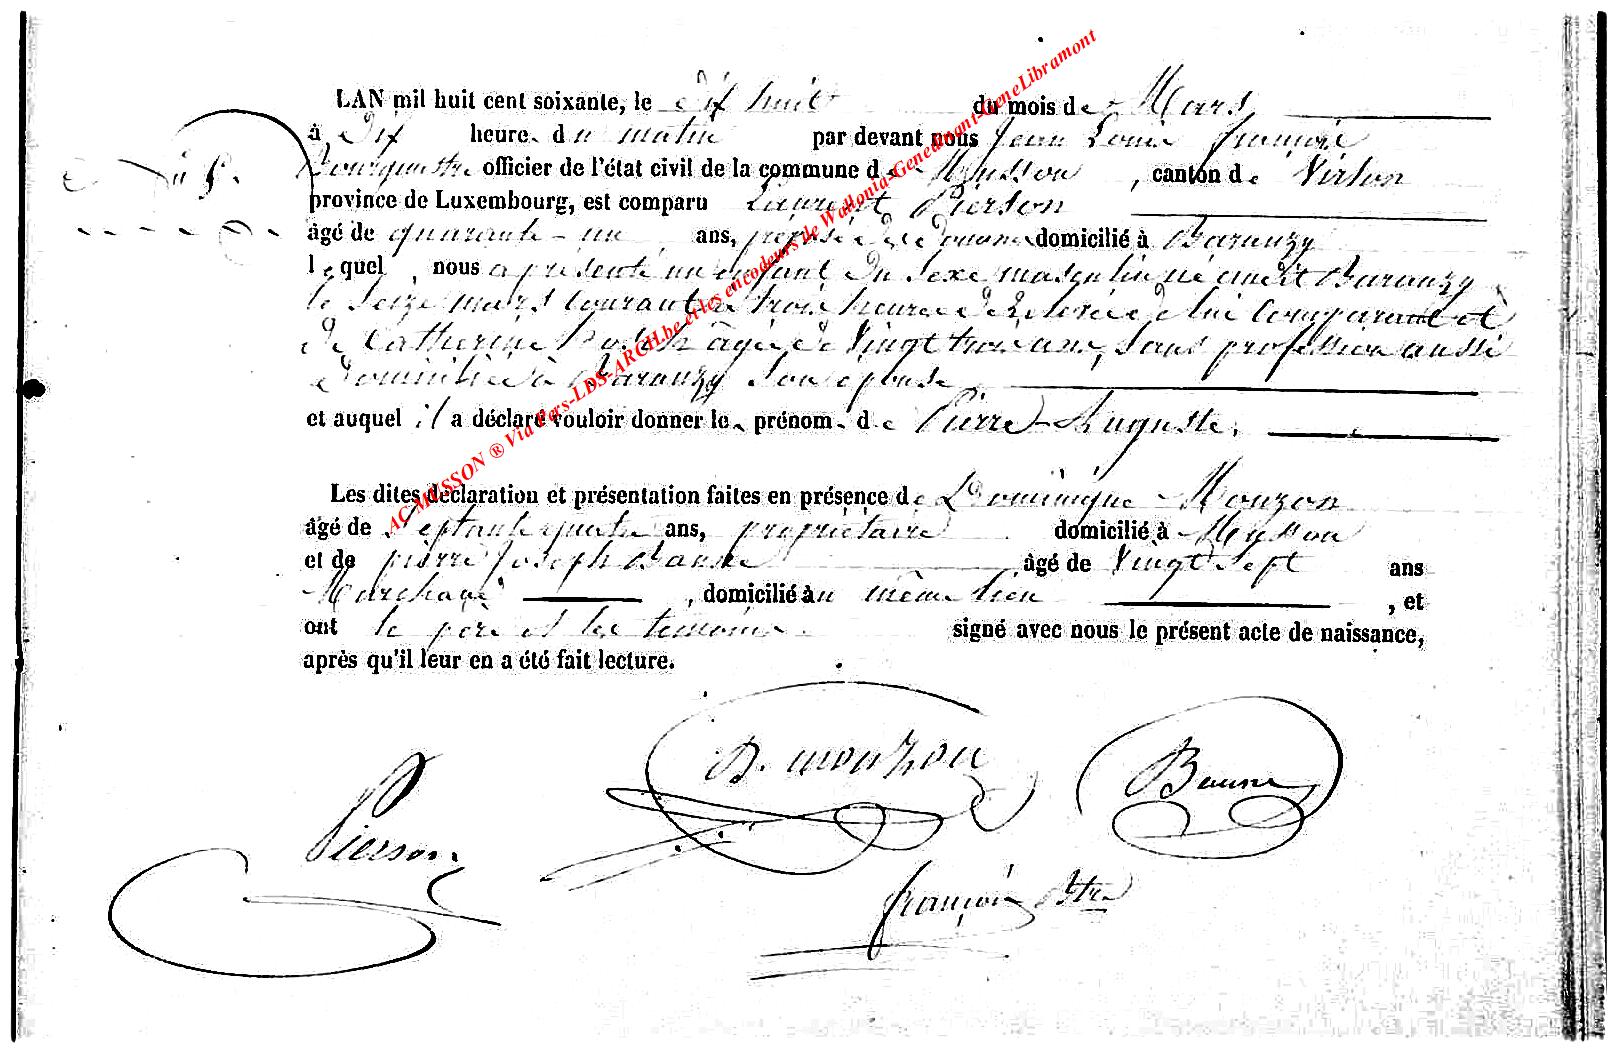 LAN mil huit cent soixante, le dix huit du mois de Mars
à Dix heure du matin par devant nous Jean Louis françois
Bourguestre officier de l'état civil de la commune de Musson, canton de Virton
Du
province de Luxembourg, est comparu Laurent Pierson
âgé de quarante-un ans, préposé des douanes domicilié à Baranzy
lequel, nous a présenté un enfant du sexe masculin né audit Baranzy
le seize mars courant à trois heures de relevée de lui comparant et
de Catherine âgée de vingt trois ans, sans profession aussi
domiciliée à Baranzy son épouse
et auquel il a déclaré vouloir donner le prénom de Pierre-Auguste.
Les dites déclaration et présentation faites en présence de Dominique Mouzon
âgé de septante quatre ans, propriétaire domicilié à Musson
et de pierre Joseph Bausse âgé de vingt sept ans
Marchand, domicilié au même lieu, et
ont le père et les témoins signé avec nous le présent acte de naissance,
après qu'il leur en a été fait lecture.
AC MUSSON ® Via Pers-LDS-ARCH.be et les encodeurs de Wallonia-Genedinant-GeneLibramont
D. mouzon
Pierson
françois Btre